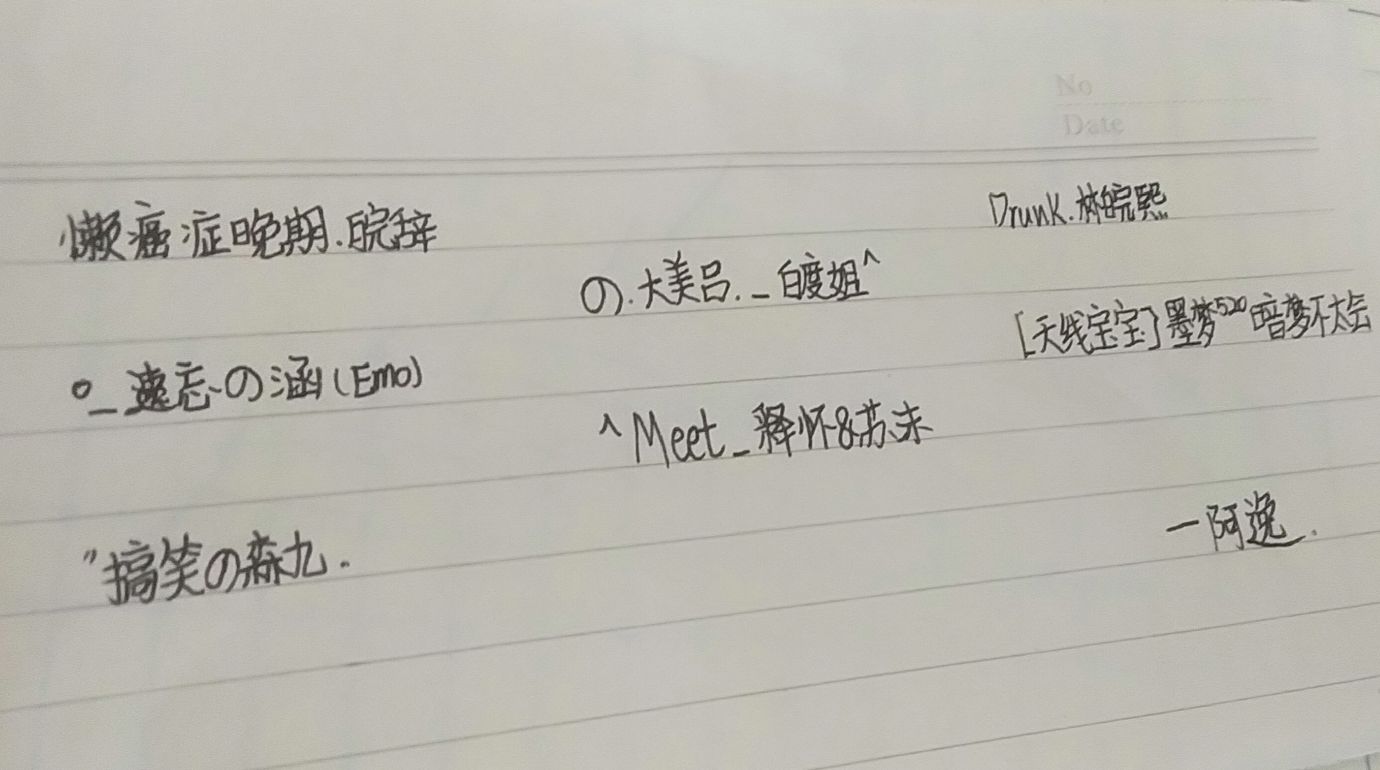 No
Date
懒癌症晚期.皖辞
Drunk.林皖熙
の.大美吕._白度姐^
[天线宝宝]墨梦520暗梦不太会
o_遗忘の涵(Emo)
^Meet_释怀&苏沫
一阿逸.
"搞笑の森九.